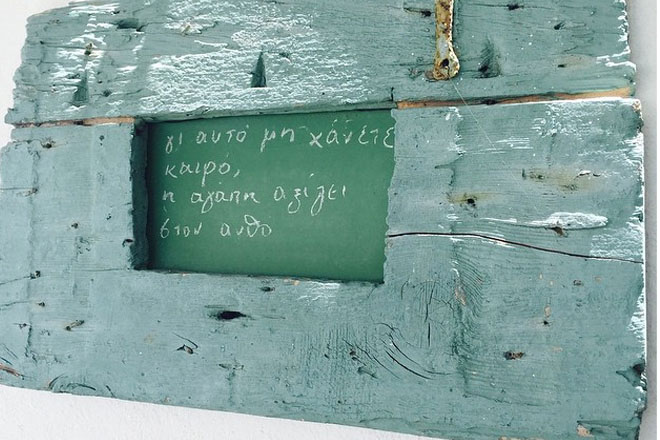 γι αυτό μη χάνετε
καιρό,
η αγάπη αξίζει
στον ανθο